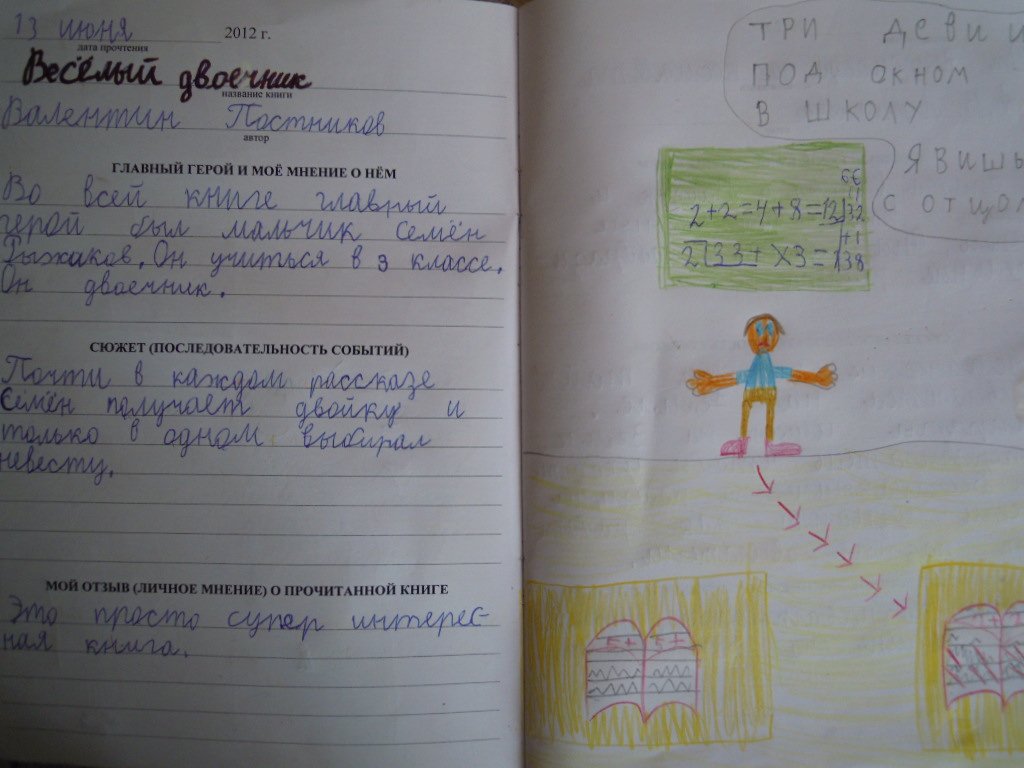 13 июня 2012 г.
дата прочтения
Весёлый двоечник
название книги
Валентин Постников
автор
ГЛАВНЫЙ ГЕРОЙ И МОЁ МНЕНИЕ О НЁМ
Во всей книге главный
герой был мальчик Семён
Рыжаков. Он учиться в 3 классе.
Он двоечник.
СЮЖЕТ (ПОСЛЕДОВАТЕЛЬНОСТЬ СОБЫТИЙ)
Почти в каждом рассказе
Семён получает двойку и
только в одном выбирал
невесту.
МОЙ ОТЗЫВ (ЛИЧНОЕ МНЕНИЕ) О ПРОЧИТАННОЙ КНИГЕ
Это просто супер интерес-
ная книга.
ТРИ ДЕВИ
ПОД ОКНОМ
В ШКОЛУ
ЯВИШЬ
С ОТЦОМ
2+2=4+8=12
5+ 5+